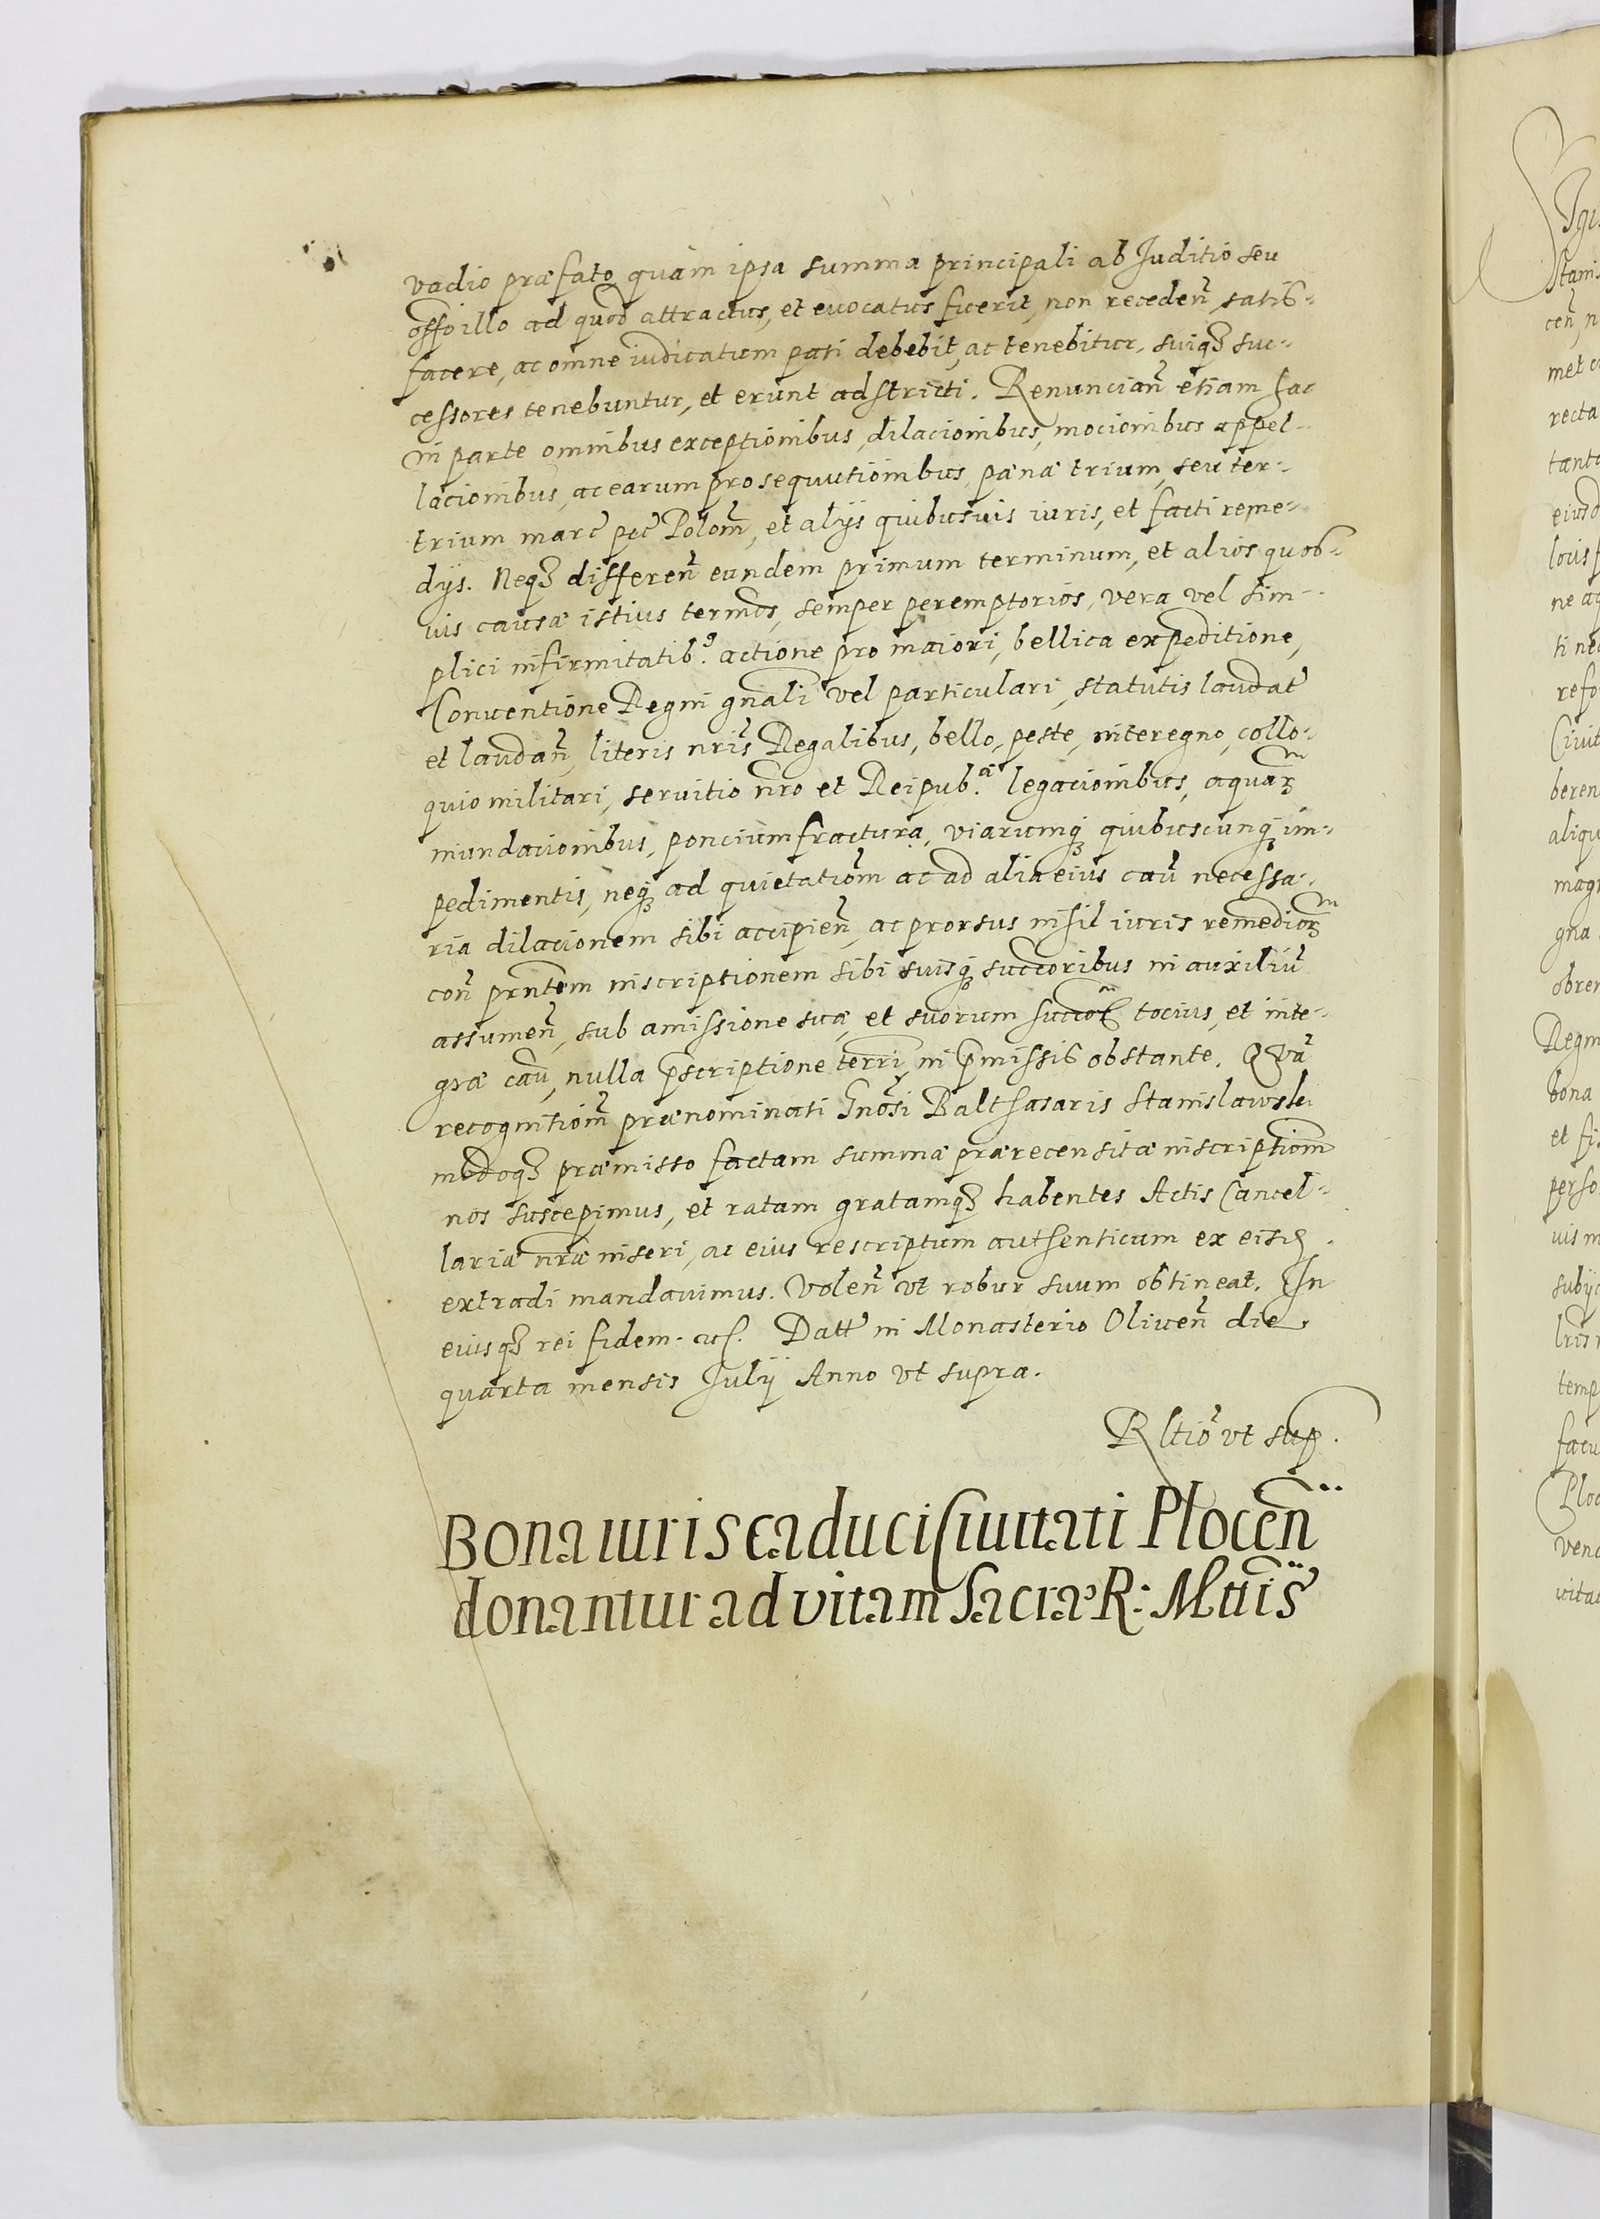 vadio præfato quàm ipsa summa principali ab Iuditio seu
offo illo ad quod attractus, et euocatus fuerit, non receden̄ satis-
facere, ac omne iudicatum pati debebit, ac tenebitur, suiqȝ suc-
cessores tenebuntur, et erunt adstricti. Renuncian̄ etiam hac
in parte omnibus exceptionibus, dilacionibus, mocionibus appel-
lacionibus, ac earum prosequutionibus, pœnæ trium, seu ter-
trium marc̄ pec̄ Polon̄, et alijs quibusuis iuris, et facti reme-
dijs. Neqȝ differen̄ eundem primum terminum, et alios quos-
uis causæ istius termōs, semper peremptorios, vera vel sim-
plici infirmitatib9. actione pro maiori, bellica expeditione,
Conuentione Regni gnāli vel particulari, statutis laudat̄
et laudan̄, literis nrīs Regalibus, bello, peste, interegno, collo-
quio militari, seruitio nrō et Reipub.æ legacionibus, aquarū
inundacionibus, poncium fractura, viarumqȝ quibuscunqȝ im-
pedimentis, neqȝ ad quietatiōm ac ad alia eius caū necessa-
ria dilacionem sibi accipien̄, ac prorsus nihil iuris remediorū
con̄ prn̄tem inscriptionem sibi suisqȝ succ̄oribus in auxiliū
assumen̄, sub amissione suæ, et suorum succ̄or tocius, et inte-
græ caū, nulla p̄scriptione terrī, in p̄missis obstante. Quā
recognitiōm prænominati Gnōsi Balthasaris Stanislawski
modoqȝ præmisso factam summæ prærecensitæ inscriptiōm
nos suscepimus, et ratam gratamqȝ habentes Actis Cancel-
lariæ nrǣ inseri, ac eius rescriptum authenticum ex eisdē
extradi mandauimus. Volen̄ vt robur suum obtineat. In
eiusqȝ rei fidem. etc. Datt̄ in Monasterio Oliuen̄ die
quarta mensis Julij Anno vt supra.
Rltiō vt sup.
Bona iuris caduci Ciuitati Plocen̄
donantur ad vitam Sacræ R: Mttis